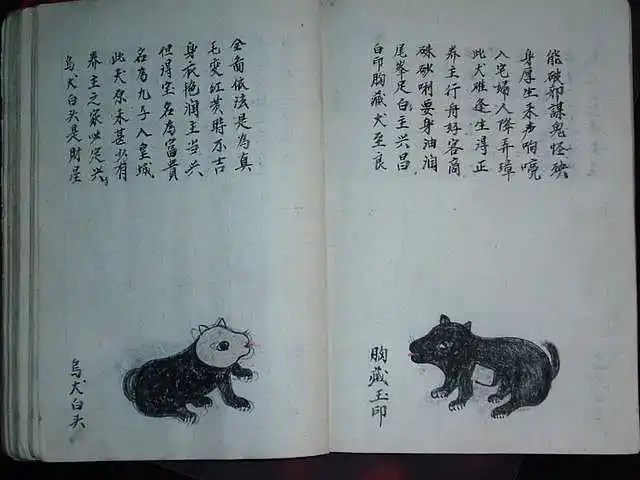 烏犬白头是財星
养主之家必定兴
此犬原来甚少有
名為九子入皇城
但得宝名為富貴
身衣艳润主当兴
毛变红黄時不吉
全依法是為真
烏犬白头
白印胸藏犬至良
尾峯足白主兴昌
硃砂唎要身油润
养主行舟好客商
此犬难逢生得正
入宅婦人降弄璋
身厚生来声响喨
能破邪謀鬼怪殃
胸藏玉印